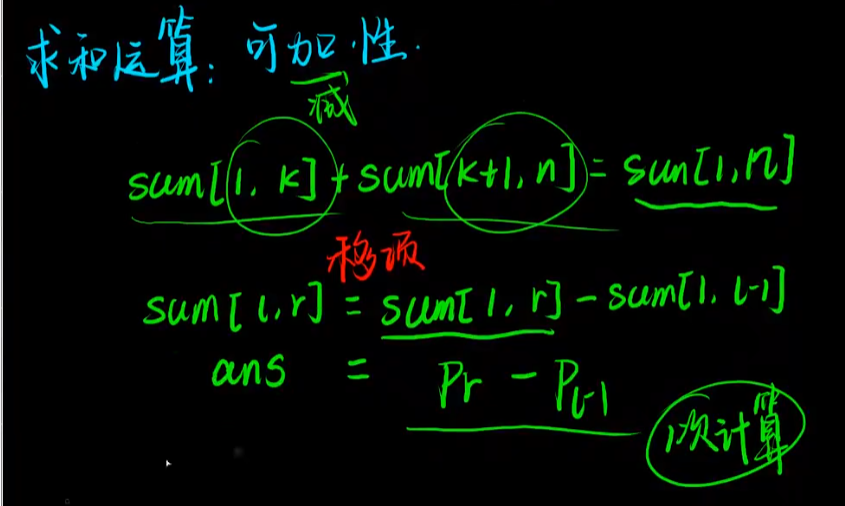 求和运算：可加性.
减
sum[1, k] + sum[k+1, n] = sun[1, n]
移项
sum[l, r] = sum[1, r] - sum[1, l-1]
ans = Pr - Pl-1
1次计算